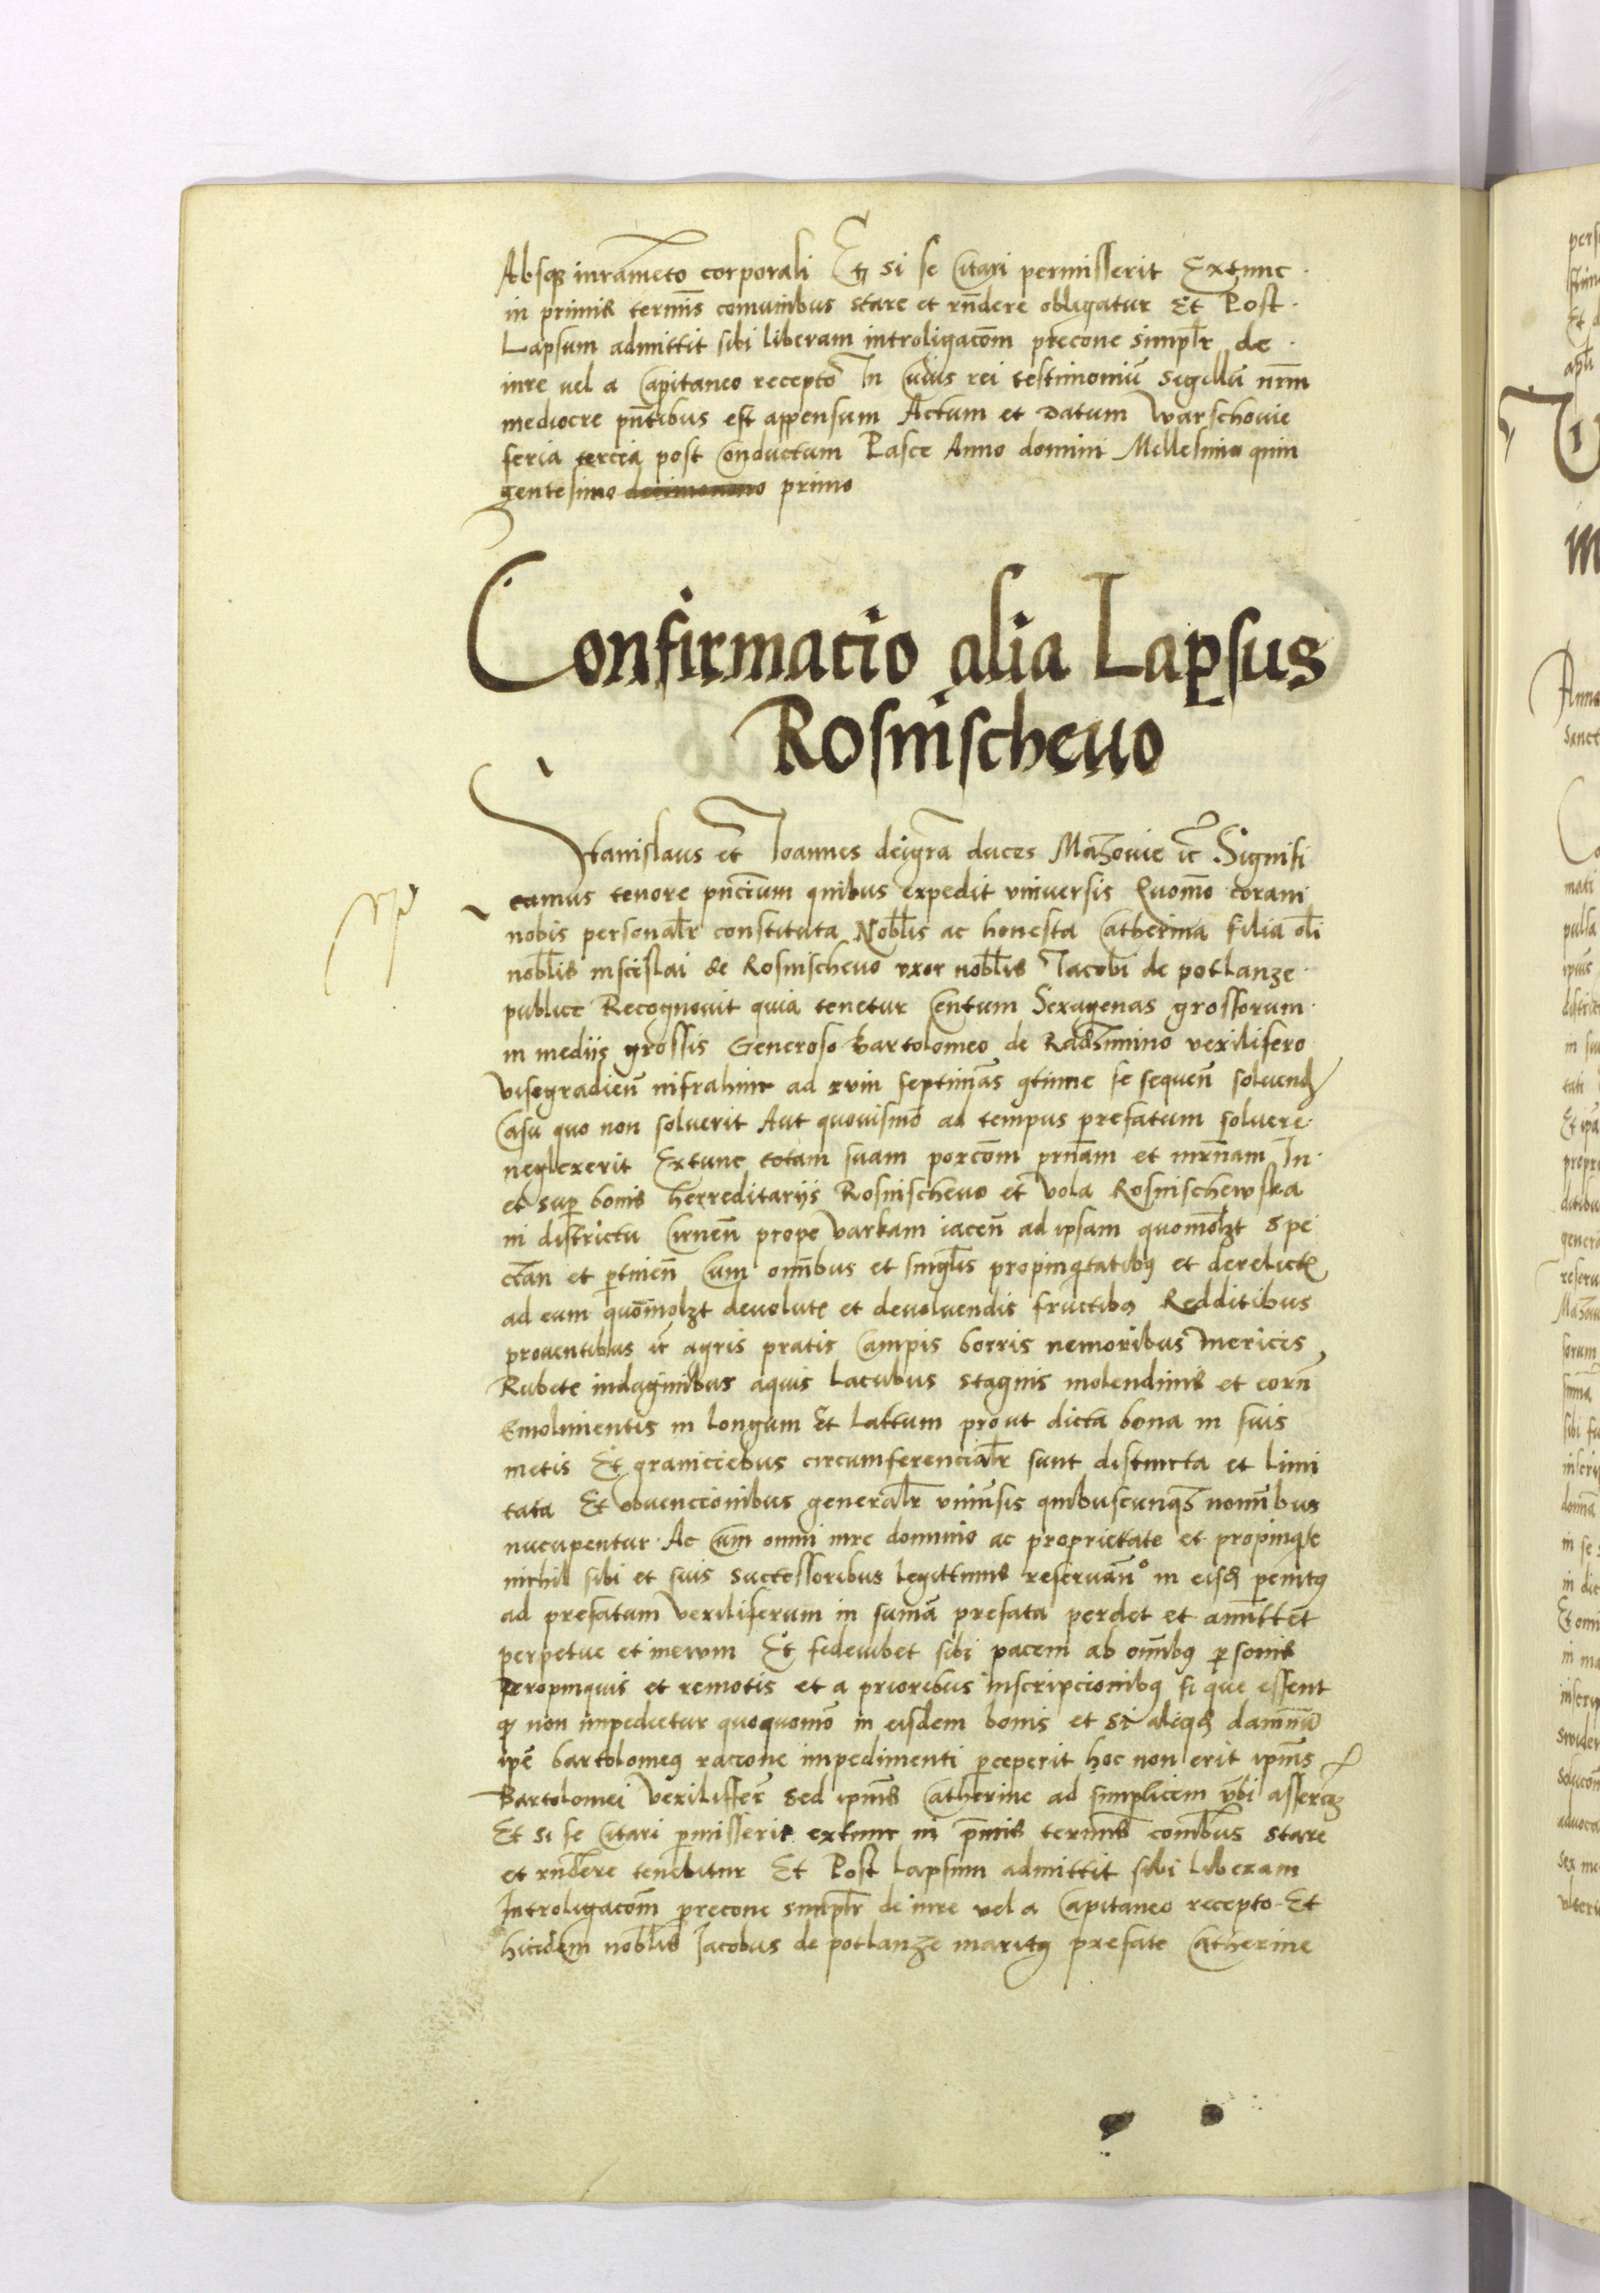 Absqꝫ iurame͂to corporali Et si se Citari permisserit Extunc
in primis termīs comunibus stare et rn̄dere obligatur Et Post
Lapsum admittit sibi liberam introligacōm precone simplr̄ de
iure uel a Capitaneo recepto In Cuius rei testimoniū Segillū nr̄m
mediocre pn̄tibus est appensum Actum et Datum Warschouie
feria tercia post Conductum Pasce Anno domini Millesimo quin
gentesimo decimonono primo
Confirmacio alia Lapsus
Rosnischeuo
Stanislaus et Joannes deigrā duces Mazouie ꝛc̄ Signifi
camus tenore pn̄cium quibus expedit vniuersis Quomō coram
nobis personalr̄ constituta Nobl̄is ac honesta Catherina filia oli̅
nobl̄is mscislai de Rosnischeuo vxor nobl̄is Jacobi de potlanze
publice Recognouit quia tenetur Centum Sexagenas grossorum
in mediis grossis Generoso Bartolomeo de Radzimino vexilifero
Visegradien̄ infrahinc ad xviii septimās qtinue se sequen̄ soluend
Casu quo non soluerit Aut quouismō ad tempus prefatum soluere
neglexerit Extunc totam suam porcōm pr̄nam et mr̄nam In
et sup̱ bonis herreditariis Rosnischeuo et Vola Rosnischewska
in districtu Cirnen̄ prope Varkam iacen̄ ad ipsam quomolꝫt Spe
ctan̄ et p̱tinen̄ Cum omn̄bus et singl̄is propinqtatibꝯ et derelictꝭ
ad eum quōmolꝫt deuolutꝭ et deuoluendis fructibꝯ Redditibus
prouentibus ꝛc̄ agris pratis Campis borris nemoribus Mericis
Rubetꝭ indaginibus aquis Lacubus Stagnis molendinis et eorn̄
Emolimentis in longum Et Lattum prout dicta bona in suis
metis Et graniciebus circumferencialr̄ sunt distincta et Limi
tata Et obuencionibus generalr̄ vniu̅sis quibuscunqꝫ nomīnbus
nucupentur Ac Cum omni iure dominio ac proprietate et propinqte
nichil sibi et suis Successoribus legittimis reseruan̄o in eisd̄ penitꝯ
ad prefatum Vexiliferum in sumā prefata perdet et amittet
perpetue et ineuum Et fideiubet sibi pacem ab omn̄bꝯ p̱sonis
Propinquis et remotis et a prioribus Inscripcionibꝯ si que essent
qꝫ non impedietur quoquomō in eisdem bonis et Si aliqd̄ damnū
ip̄e bartolomeꝯ racione impedimenti p̱ceperit hoc non erit ipīus
Bartolomei Vexilifferi Sed ipīus Catherine ad simplicem v̄bi assercꝫ
Et si se Citari p̱misserit extunc in p̄mis termīs com̄bus Stare
et rn̄dere tenebitur Et Post lapsum admittit sibi Liberam
Introligacōm p̱recone simplr̄ de iure vel a Capitaneo recepto Et
hicidem nobl̄is Jacobus de potlanze maritꝯ prefate Catherine